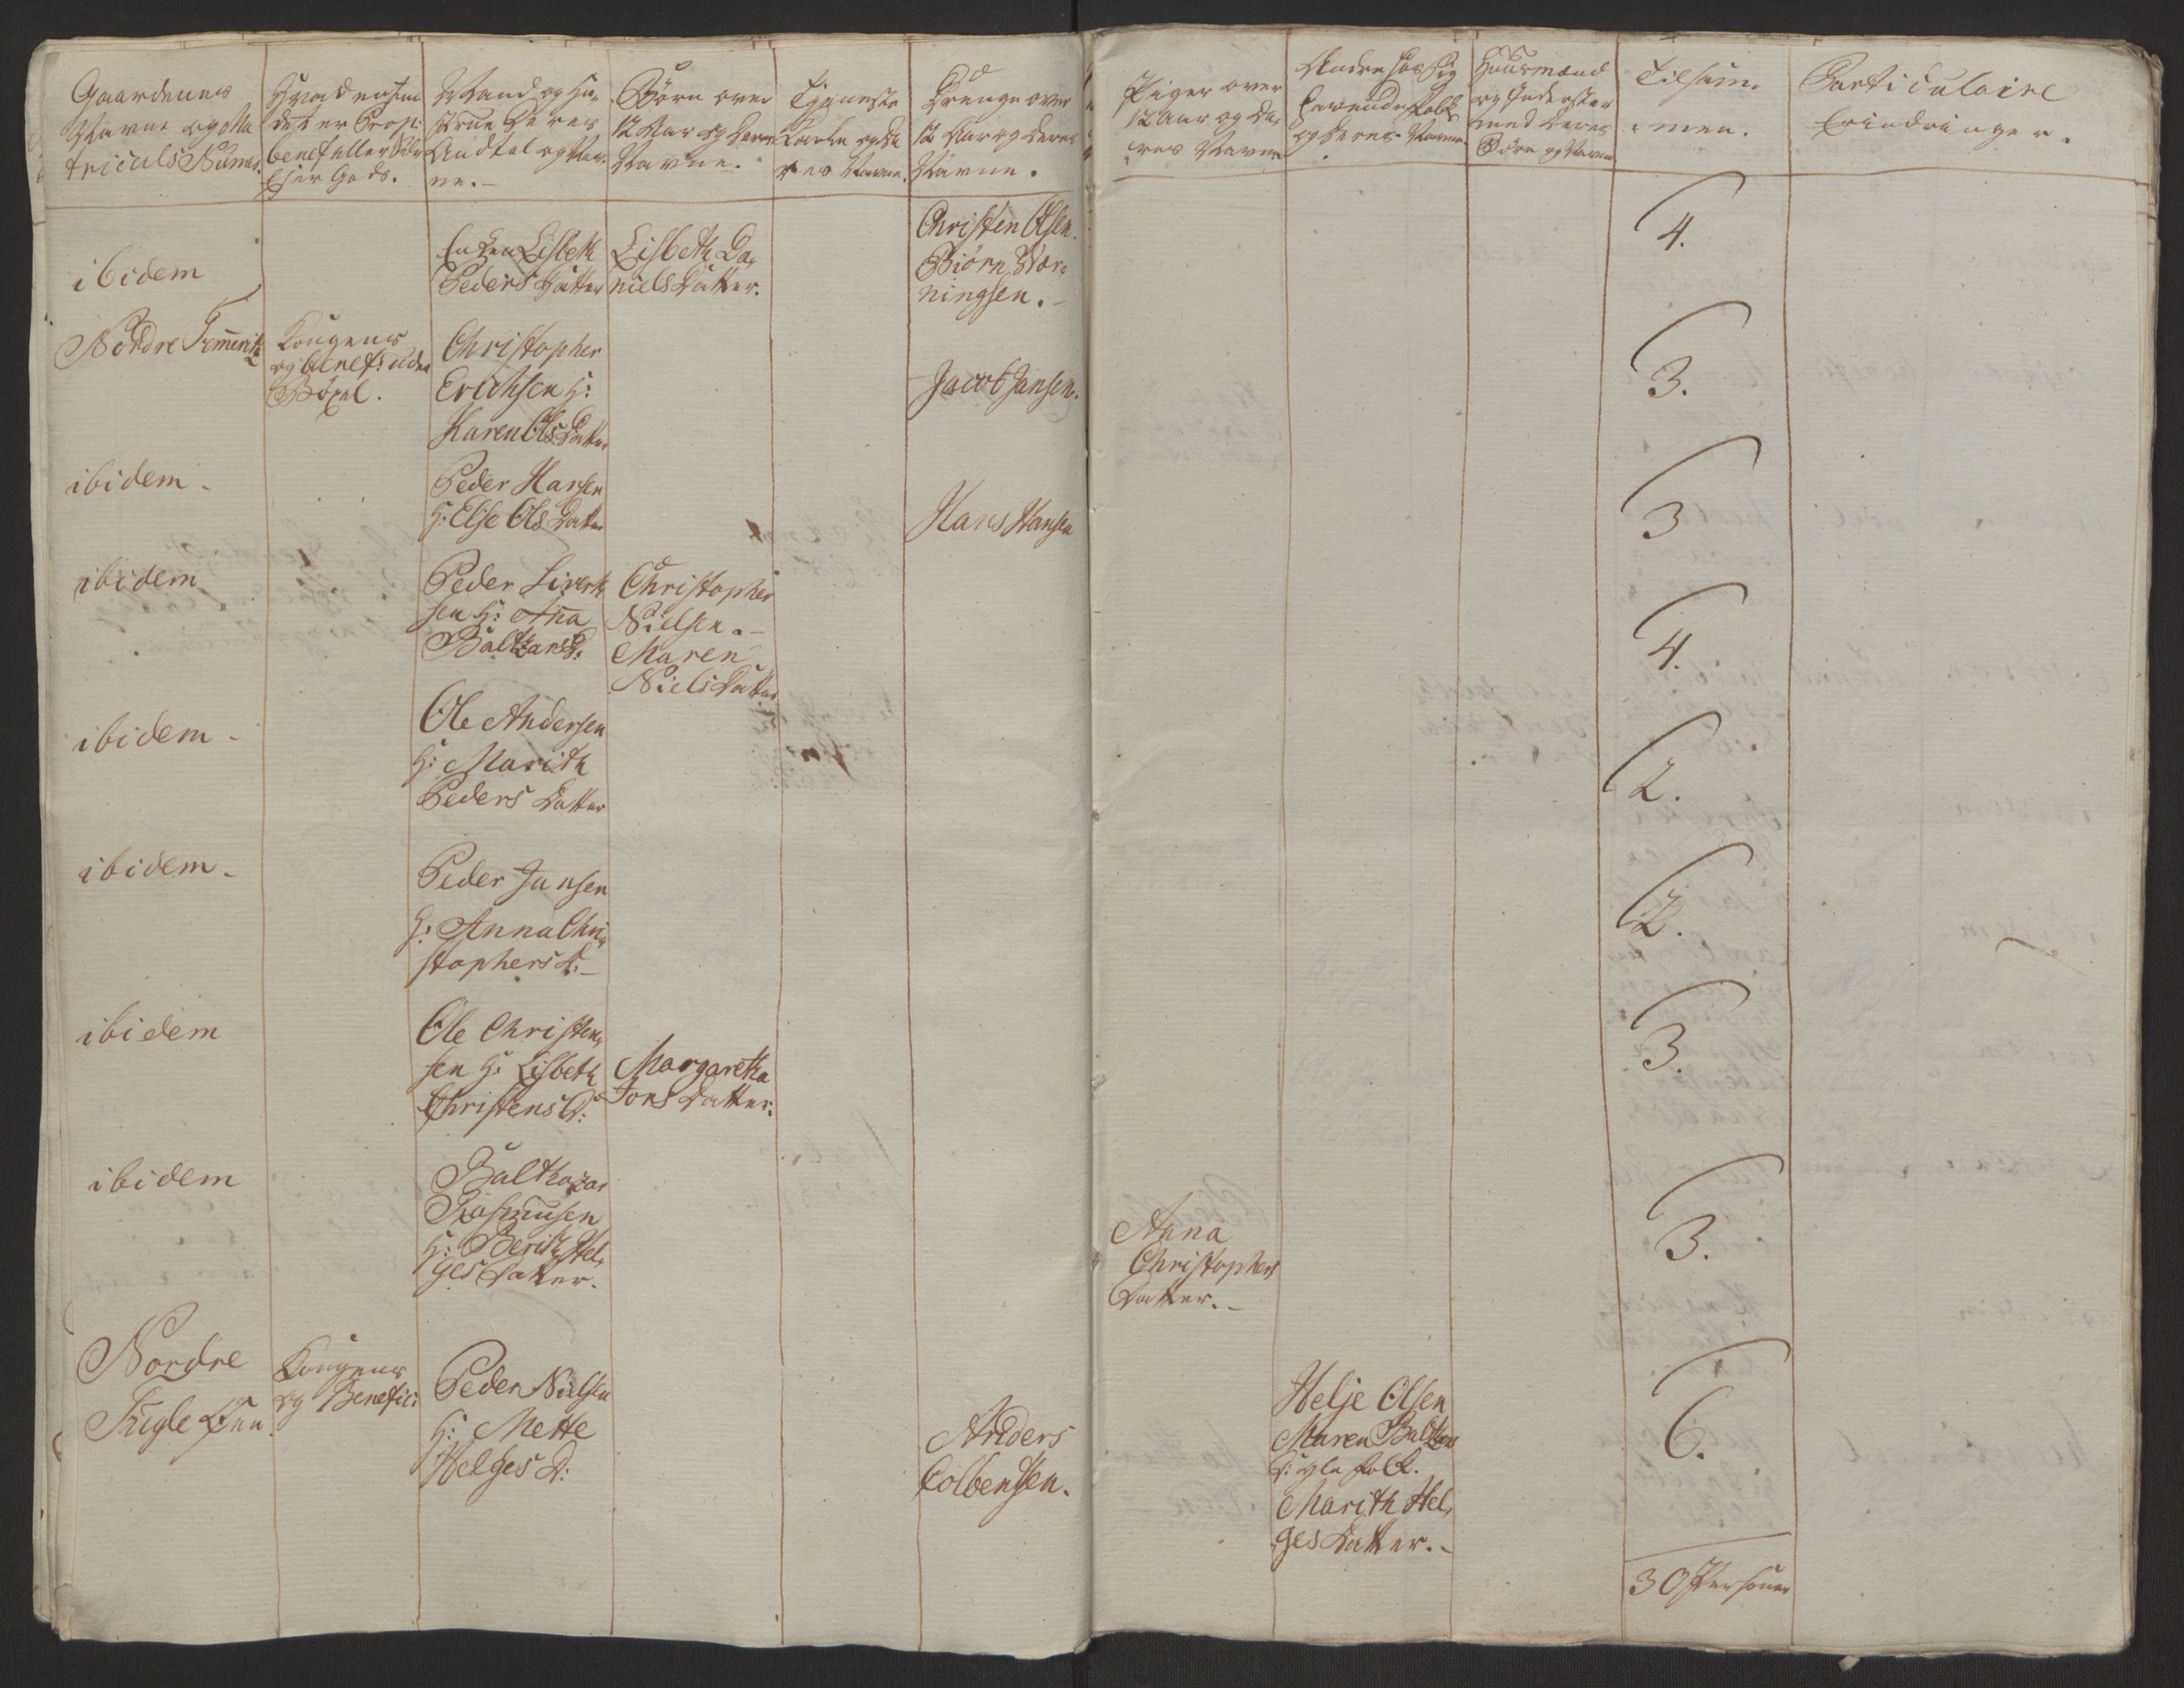 Gaardenes
Navne og Ma
triculs Numer.
det er Prop:
benef eller
Ejer Gods.
Mand og Hu,
strue Deres
Andtal og Nav,
ne.-
Børn over
12 Aar og deres
Navne.
Tjeneste
Karle og De
res Navne.
Drenge over
12 Aar og deres
Navne.
Piger over
12 Aar og De,
res Navne
Andre hos sig
havende Folk
og Deres Navne.
Huusmænd
og Inderster
med Deres
Børn og Navne
Tilsam,
men.
Particulaire
Erindringer.
ibidem
Enken Lisbeth
Peders Datter
Lisbeth Da,
niels Datter.
Christen Olsen.
Biørn
ningsen.-
4.
Nordre
Kongens
og benef: uden
Bøxel.
Christopher
Erichsen H:
Karen Ols Datter
Jacob Jansen.
3.
ibidem-
Peder Hansen
H: Else Ols Datter
Hans Hansen
3
ibidem
Peder Sivert,
sen H: Anna
Baltzars D:
Christopher
Nielsen.-
Maren
Niels Datter
4.
ibidem-
Ole Andersen
H: Marith
Peders Datter
2.
ibidem-
Peder Jansen
H: Anna Chri,
stophers D:-
2.
ibidem
Ole Christen,
sen H: Lisbeth
Christens D:
Margaretha
Jons Datter.
3.
ibidem
Balthazar
Rasmusen
H: Berith Hel,
ges Datter.
Anna
Christophers
Datter.-
3.
Nordre
Kongens
og Benefic:
Peder Nielsen
H: Mette
Helges D:
Anders
Colbensen.
Helje Olsen
Maren Baltzers
D: gle folk.
Marith Hel,
ges Datter.-
6.
30 Personer